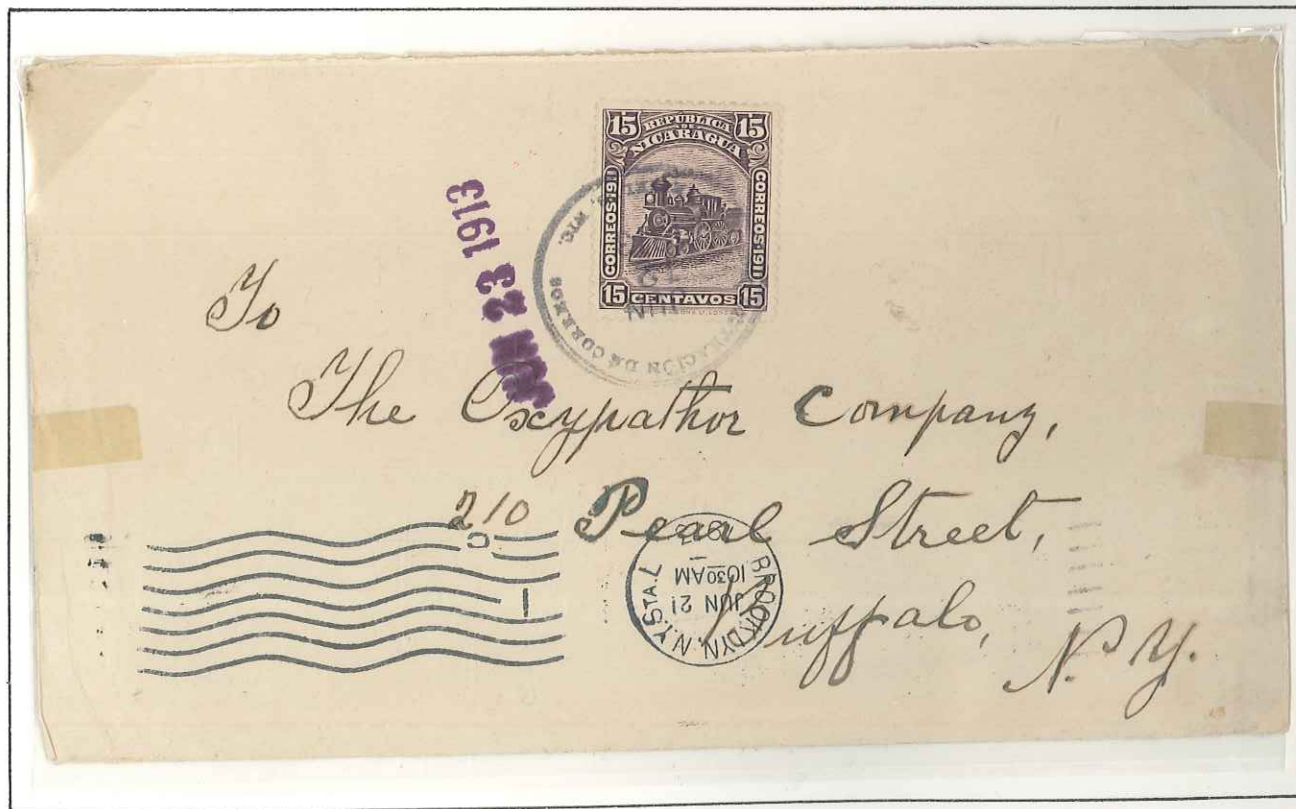 15 REPUBLICA 15
DE
NICARAGUA
CORREOS·1911
CORREOS·1911
15 CENTAVOS 15
NIC.
DE CORREOS
JUN
JUN 23 1913
To
The Oxypathor Company,
210 Pearl Street,
Buffalo,
N. Y.
BROOKLYN, N.Y. STA. L
JUN 21
10 30 AM